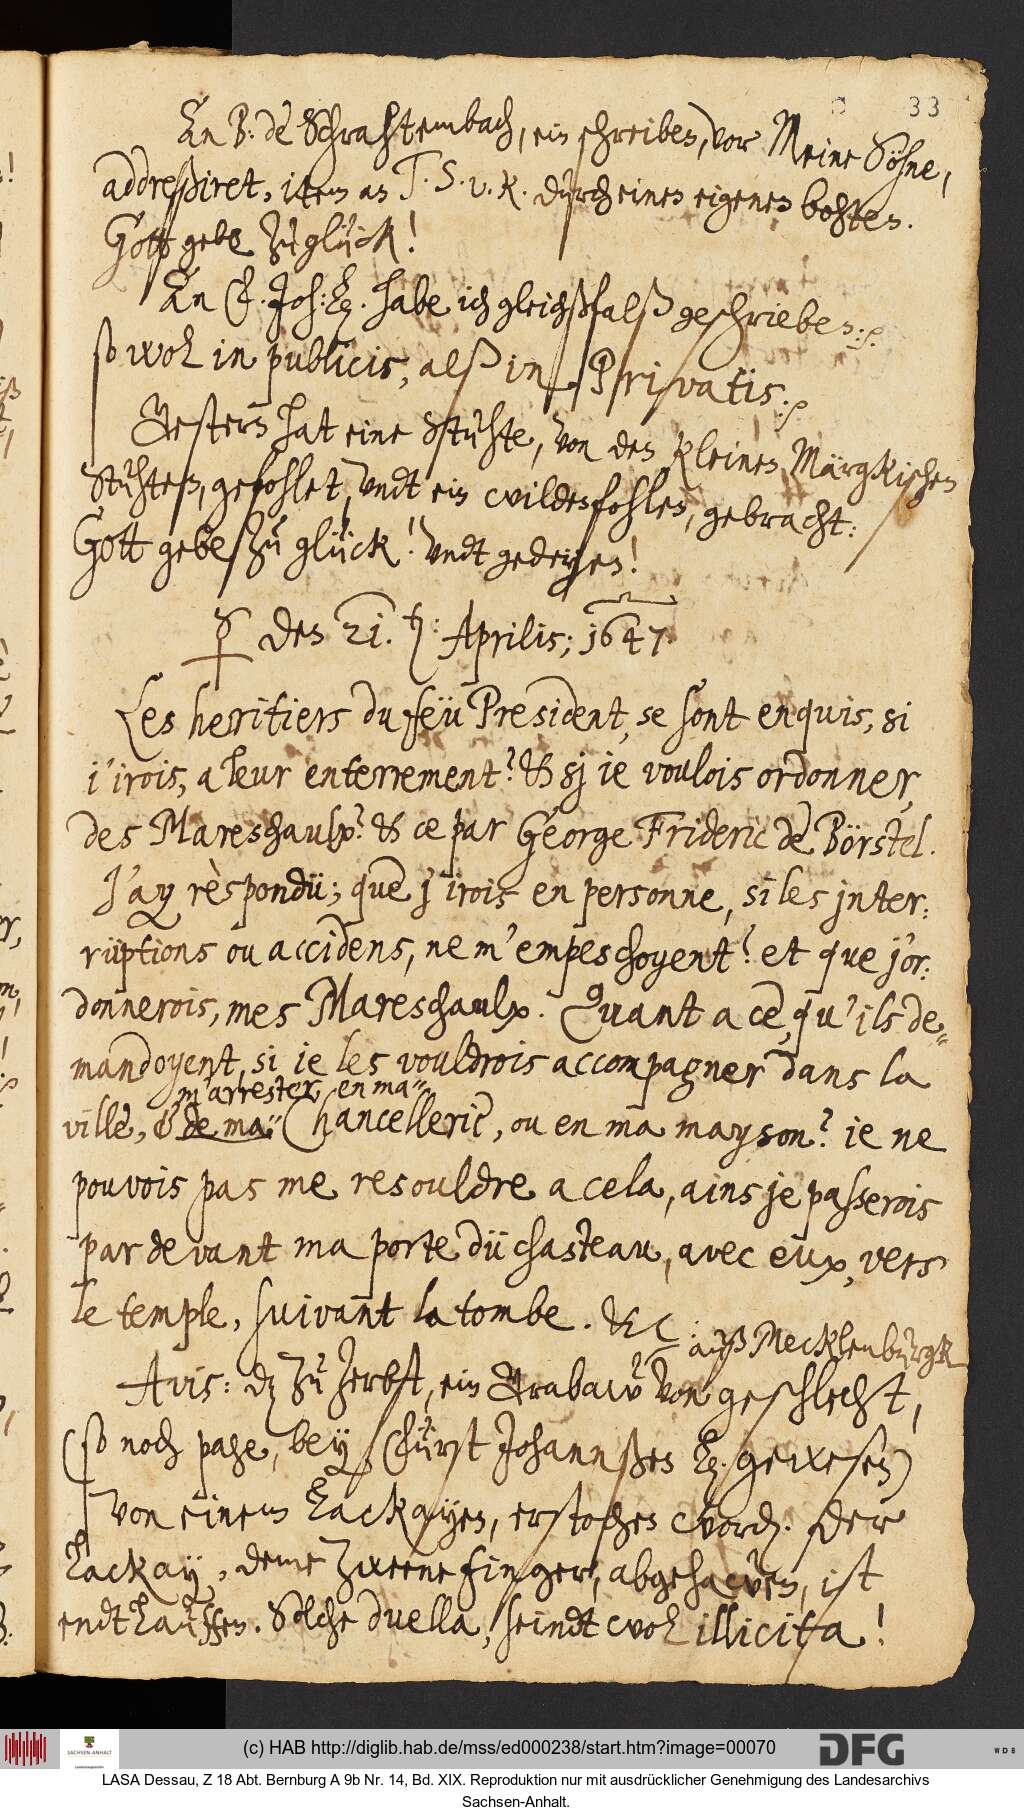 33
An B: de Schrahtembach, ein schreiben, vor Meine Söhne,
addreßiret, item an T. S. v. K. durch einen eigenen bohten.
Gott gebe zu glück!
An F. Joh: Lg. habe ich gleichßfalß geschrieben.
so wol in publicis, alß in Privatis.
Gestern hat eine Stuhte, von den kleinen Märgkischen
Stuhten, gefohlet, undt ein wildesfohlen, gebracht:
Gott gebe zu glück! undt gedeyen!
☿ den 21. Aprilis; 1647.
Les heritiers du feü President, se sont enquis, si
i'irois, a leur enterrement? & sj ie voulois ordonner,
des Mareschaulx? & ce par George Frideric de Börstel.
J'ay rèspondü; que j'irois en personne, si les jnter:
rüptions ou accidens, ne m'empeschoyent? et que j'or:
donnerois, mes Mareschaulx. Quant a ce, qu'ils de-
mandoyent, si ie les vouldrois accompagner dans la
m'arrester en ma
ville, & de ma Chancellerie, ou en ma mayson? ie ne
pouvois pas me resouldre a cela, ains je passerois
par devant ma porte dü chasteau, avec eux, vers
le temple, suivant la tombe. &c:
auß Mecklenburgk
Avis: dz zu Zerbst, ein Grabaw von geschlecht,
(so noch page, bey Fürst Johannßen Lg. gewesen)
von einem Lackayen, erstochen word. der
Lackay, deme zweene finger, abgehawen, ist
endtlauffen. Solche duella, seindt wol illicita!
(c) HAB http://diglib.hab.de/mss/ed000238/start.htm?image=00070
SACHSEN-ANHALT
DFG
WDB
LASA Dessau, Z 18 Abt. Bernburg A 9b Nr. 14, Bd. XIX. Reproduktion nur mit ausdrücklicher Genehmigung des Landesarchivs
Sachsen-Anhalt.